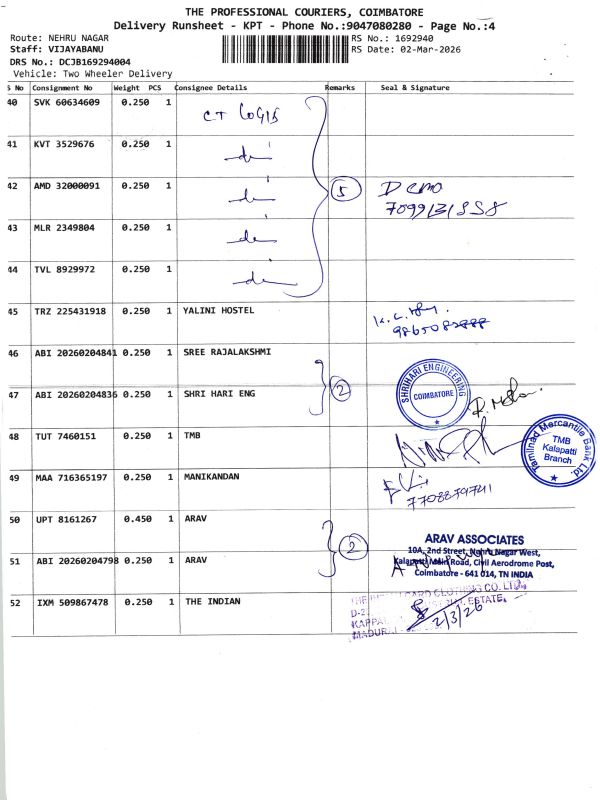 THE PROFESSIONAL COURIERS, COIMBATORE
Delivery Runsheet - KPT - Phone No.:9047080280 - Page No.:4
Route: NEHRU NAGAR
RS No.: 1692940
Staff: VIJAYABANU
RS Date: 02-Mar-2026
DRS No.: DCJB169294004
Vehicle: Two Wheeler Delivery
S No Consignment No Weight PCS Consignee Details Remarks Seal & Signature
40 SVK 60634609 0.250 1 CT LOGIS
41 KVT 3529676 0.250 1
42 AMD 32000091 0.250 1 5 Demo
43 MLR 2349804 0.250 1
44 TVL 8929972 0.250 1
45 TRZ 225431918 0.250 1 YALINI HOSTEL
46 ABI 20260204841 0.250 1 SREE RAJALAKSHMI
47 ABI 20260204836 0.250 1 SHRI HARI ENG 2
SHRIHARI ENGINEERING
COIMBATORE
48 TUT 7460151 0.250 1 TMB
Tamilnad Mercantile Bank Ltd.
TMB
Kalapatti
Branch
49 MAA 716365197 0.250 1 MANIKANDAN
7708879741
50 UPT 8161267 0.450 1 ARAV
51 ABI 20260204798 0.250 1 ARAV 2
ARAV ASSOCIATES
10A, 2nd Street, Nehru Nagar West,
Kalapatti Main Road, Civil Aerodrome Post,
Coimbatore - 641 014, TN INDIA
52 IXM 509867478 0.250 1 THE INDIAN
CLOTHING CO. LTD.
ESTATE,
2/3/26